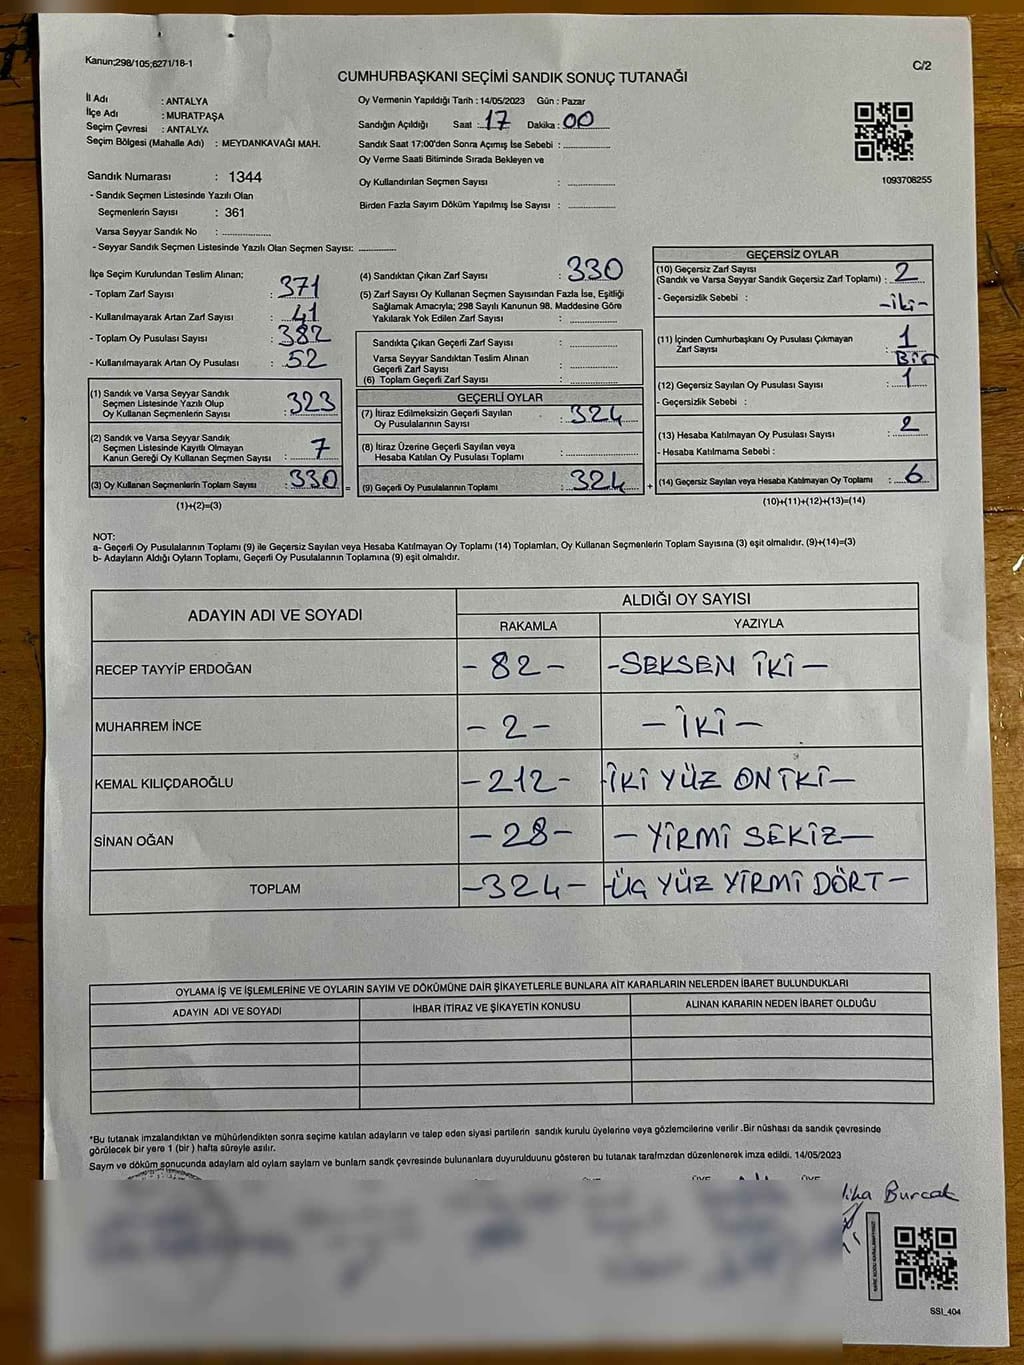 Kanun;298/105;6271/18-1
C/2
CUMHURBAŞKANI SEÇİMİ SANDIK SONUÇ TUTANAĞI
İl Adı : ANTALYA
İlçe Adı : MURATPAŞA
Seçim Çevresi : ANTALYA
Seçim Bölgesi (Mahalle Adı) : MEYDANKAVAĞI MAH.
Oy Vermenin Yapıldığı Tarih : 14/05/2023 Gün : Pazar
Sandığın Açıldığı Saat : 17 Dakika : 00
Sandık Saat 17:00'den Sonra Açımış İse Sebebi :
Oy Verme Saati Bitiminde Sırada Bekleyen ve
Oy Kullandırılan Seçmen Sayısı :
Birden Fazla Sayım Döküm Yapılmış İse Sayısı :
1093708255
Sandık Numarası : 1344
- Sandık Seçmen Listesinde Yazılı Olan
Seçmenlerin Sayısı : 361
Varsa Seyyar Sandık No :
- Seyyar Sandık Seçmen Listesinde Yazılı Olan Seçmen Sayısı:
İlçe Seçim Kurulundan Teslim Alınan;
- Toplam Zarf Sayısı : 371
- Kullanılmayarak Artan Zarf Sayısı : 41
- Toplam Oy Pusulası Sayısı : 382
- Kullanılmayarak Artan Oy Pusulası : 52
(1) Sandık ve Varsa Seyyar Sandık
Seçmen Listesinde Yazılı Olup
Oy Kullanan Seçmenlerin Sayısı : 323
(2) Sandık ve Varsa Seyyar Sandık
Seçmen Listesinde Kayıtlı Olmayan
Kanun Gereği Oy Kullanan Seçmen Sayısı : 7
(3) Oy Kullanan Seçmenlerin Toplam Sayısı : 330 =
(1)+(2)=(3)
(4) Sandıktan Çıkan Zarf Sayısı : 330
(5) Zarf Sayısı Oy Kullanan Seçmen Sayısından Fazla İse, Eşitliği
Sağlamak Amacıyla; 298 Sayılı Kanunun 98. Maddesine Göre
Yakılarak Yok Edilen Zarf Sayısı :
Sandıkta Çıkan Geçerli Zarf Sayısı :
Varsa Seyyar Sandıktan Teslim Alınan
Geçerli Zarf Sayısı :
(6) Toplam Geçerli Zarf Sayısı :
GEÇERLİ OYLAR
(7) İtiraz Edilmeksizin Geçerli Sayılan
Oy Pusulalarının Sayısı : 324
(8) İtiraz Üzerine Geçerli Sayılan veya
Hesaba Katılan Oy Pusulası Toplamı :
(9) Geçerli Oy Pusulalarının Toplamı : 324 +
GEÇERSİZ OYLAR
(10) Geçersiz Zarf Sayısı
(Sandık ve Varsa Seyyar Sandık Geçersiz Zarf Toplamı) : 2
- Geçersizlik Sebebi : -iki-
(11) İçinden Cumhurbaşkanı Oy Pusulası Çıkmayan
Zarf Sayısı : 1
Bir
(12) Geçersiz Sayılan Oy Pusulası Sayısı : 1
- Geçersizlik Sebebi :
(13) Hesaba Katılmayan Oy Pusulası Sayısı : 2
- Hesaba Katılmama Sebebi :
(14) Geçersiz Sayılan veya Hesaba Katılmayan Oy Toplamı : 6
(10)+(11)+(12)+(13)=(14)
NOT:
a- Geçerli Oy Pusulalarının Toplamı (9) ile Geçersiz Sayılan veya Hesaba Katılmayan Oy Toplamı (14) Toplamları, Oy Kullanan Seçmenlerin Toplam Sayısına (3) eşit olmalıdır. (9)+(14)=(3)
b- Adayların Aldığı Oyların Toplamı, Geçerli Oy Pusulalarının Toplamına (9) eşit olmalıdır.
ADAYIN ADI VE SOYADI
ALDIĞI OY SAYISI
RAKAMLA YAZIYLA
RECEP TAYYİP ERDOĞAN - 82 - - SEKSEN İKİ -
MUHARREM İNCE - 2 - - İKİ -
KEMAL KILIÇDAROĞLU - 212 - - İKİ YÜZ ON İKİ -
SİNAN OĞAN - 28 - - YİRMİ SEKİZ -
TOPLAM - 324 - - ÜÇ YÜZ YİRMİ DÖRT -
OYLAMA İŞ VE İŞLEMLERİNE VE OYLARIN SAYIM VE DÖKÜMÜNE DAİR ŞİKAYETLERLE BUNLARA AİT KARARLARIN NELERDEN İBARET BULUNDUKLARI
ADAYIN ADI VE SOYADI İHBAR İTİRAZ VE ŞİKAYETİN KONUSU ALINAN KARARIN NEDEN İBARET OLDUĞU
*Bu tutanak imzalandıktan ve mühürlendikten sonra seçime katılan adayların ve talep eden siyasi partilerin sandık kurulu üyelerine veya gözlemcilerine verilir .Bir nüshası da sandık çevresinde
görülecek bir yere 1 (bir) hafta süreyle asılır.
Sayım ve döküm sonucunda adayların ald oyların sayları ve bunların sandk çevresinde bulunanlara duyurulduunu gösteren bu tutanak tarafmzdan düzenlenerek imza edildi. 14/05/2023
Burcak
SSI_404